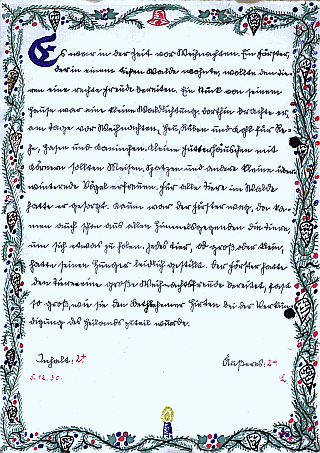 Es war in der Zeit vor Weihnachten. Ein Förster,
der in einem tiefen Walde wohnte, wollte den Tie-
ren eine rechte Freude bereiten. Ein Stück von seinem
Hause war eine kleine Waldlichtung. Dorthin brachte er,
am Tage vor Weihnachten, Heu, Rüben und Kohl für Re-
he, Hasen und Kaninchen. Kleine Futterhäuschen mit
Körnern sollten Meisen, Spatzen und andere kleine über
winternde Vögel erfreuen. Für alle Tiere im Walde
hatte er gesorgt. Kaum war der Förster weg, da ka-
men auch schon aus allen Himmelsgegenden die Tiere,
um sich etwas zu holen. Jedes Tier, ob groß oder klein,
hatte seinen Hunger leidlich gestillt. Der Förster hatte
den Tieren eine große Weihnachtsfreude bereitet, fast
so groß, wie sie den Bethlehemer Hirten bei der Verkün
digung des Heilands zuteil wurde.
Inhalt: 2+ Äußeres: 2-
5.12.30.